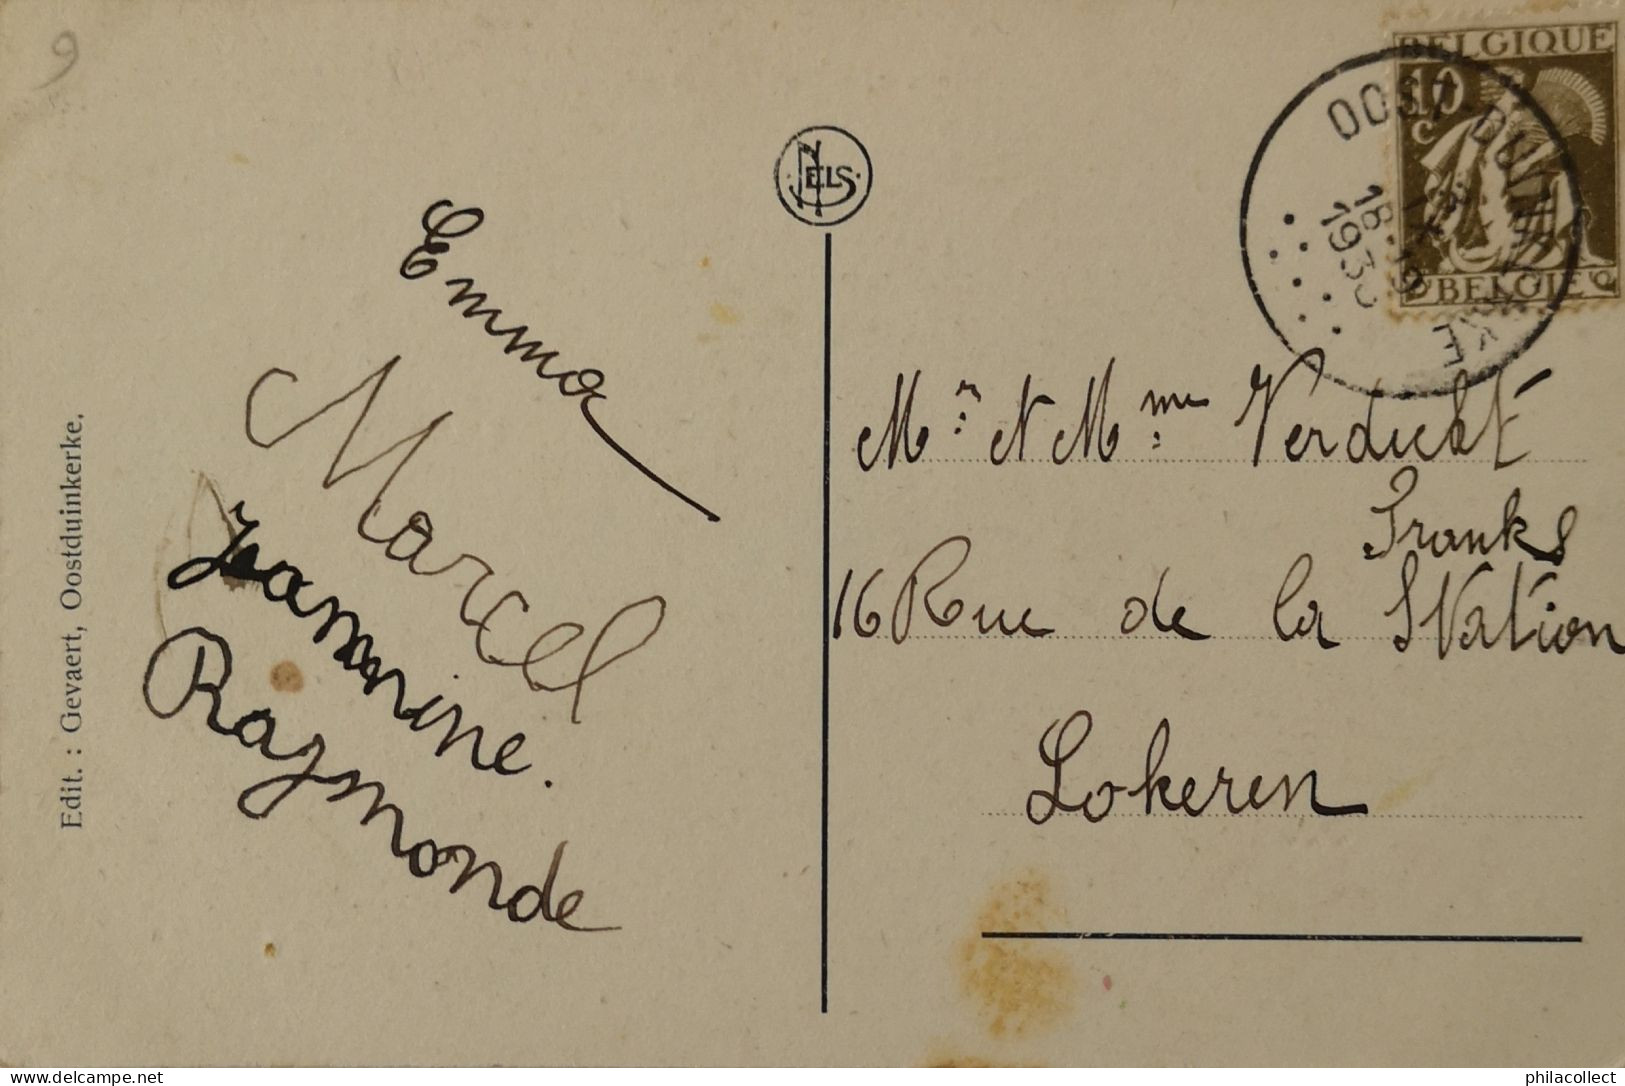 9
NELS
BELGIQUE
10
C
BELGIE
OOST-DUINKERKE
18-19
193
Emma
Marcel
Jeannine.
Raymonde
Edit. : Gevaert, Oostduinkerke.
Mr. et Mme. Verdickt
Franks
16 Rue de la Station
Lokeren
philacollect